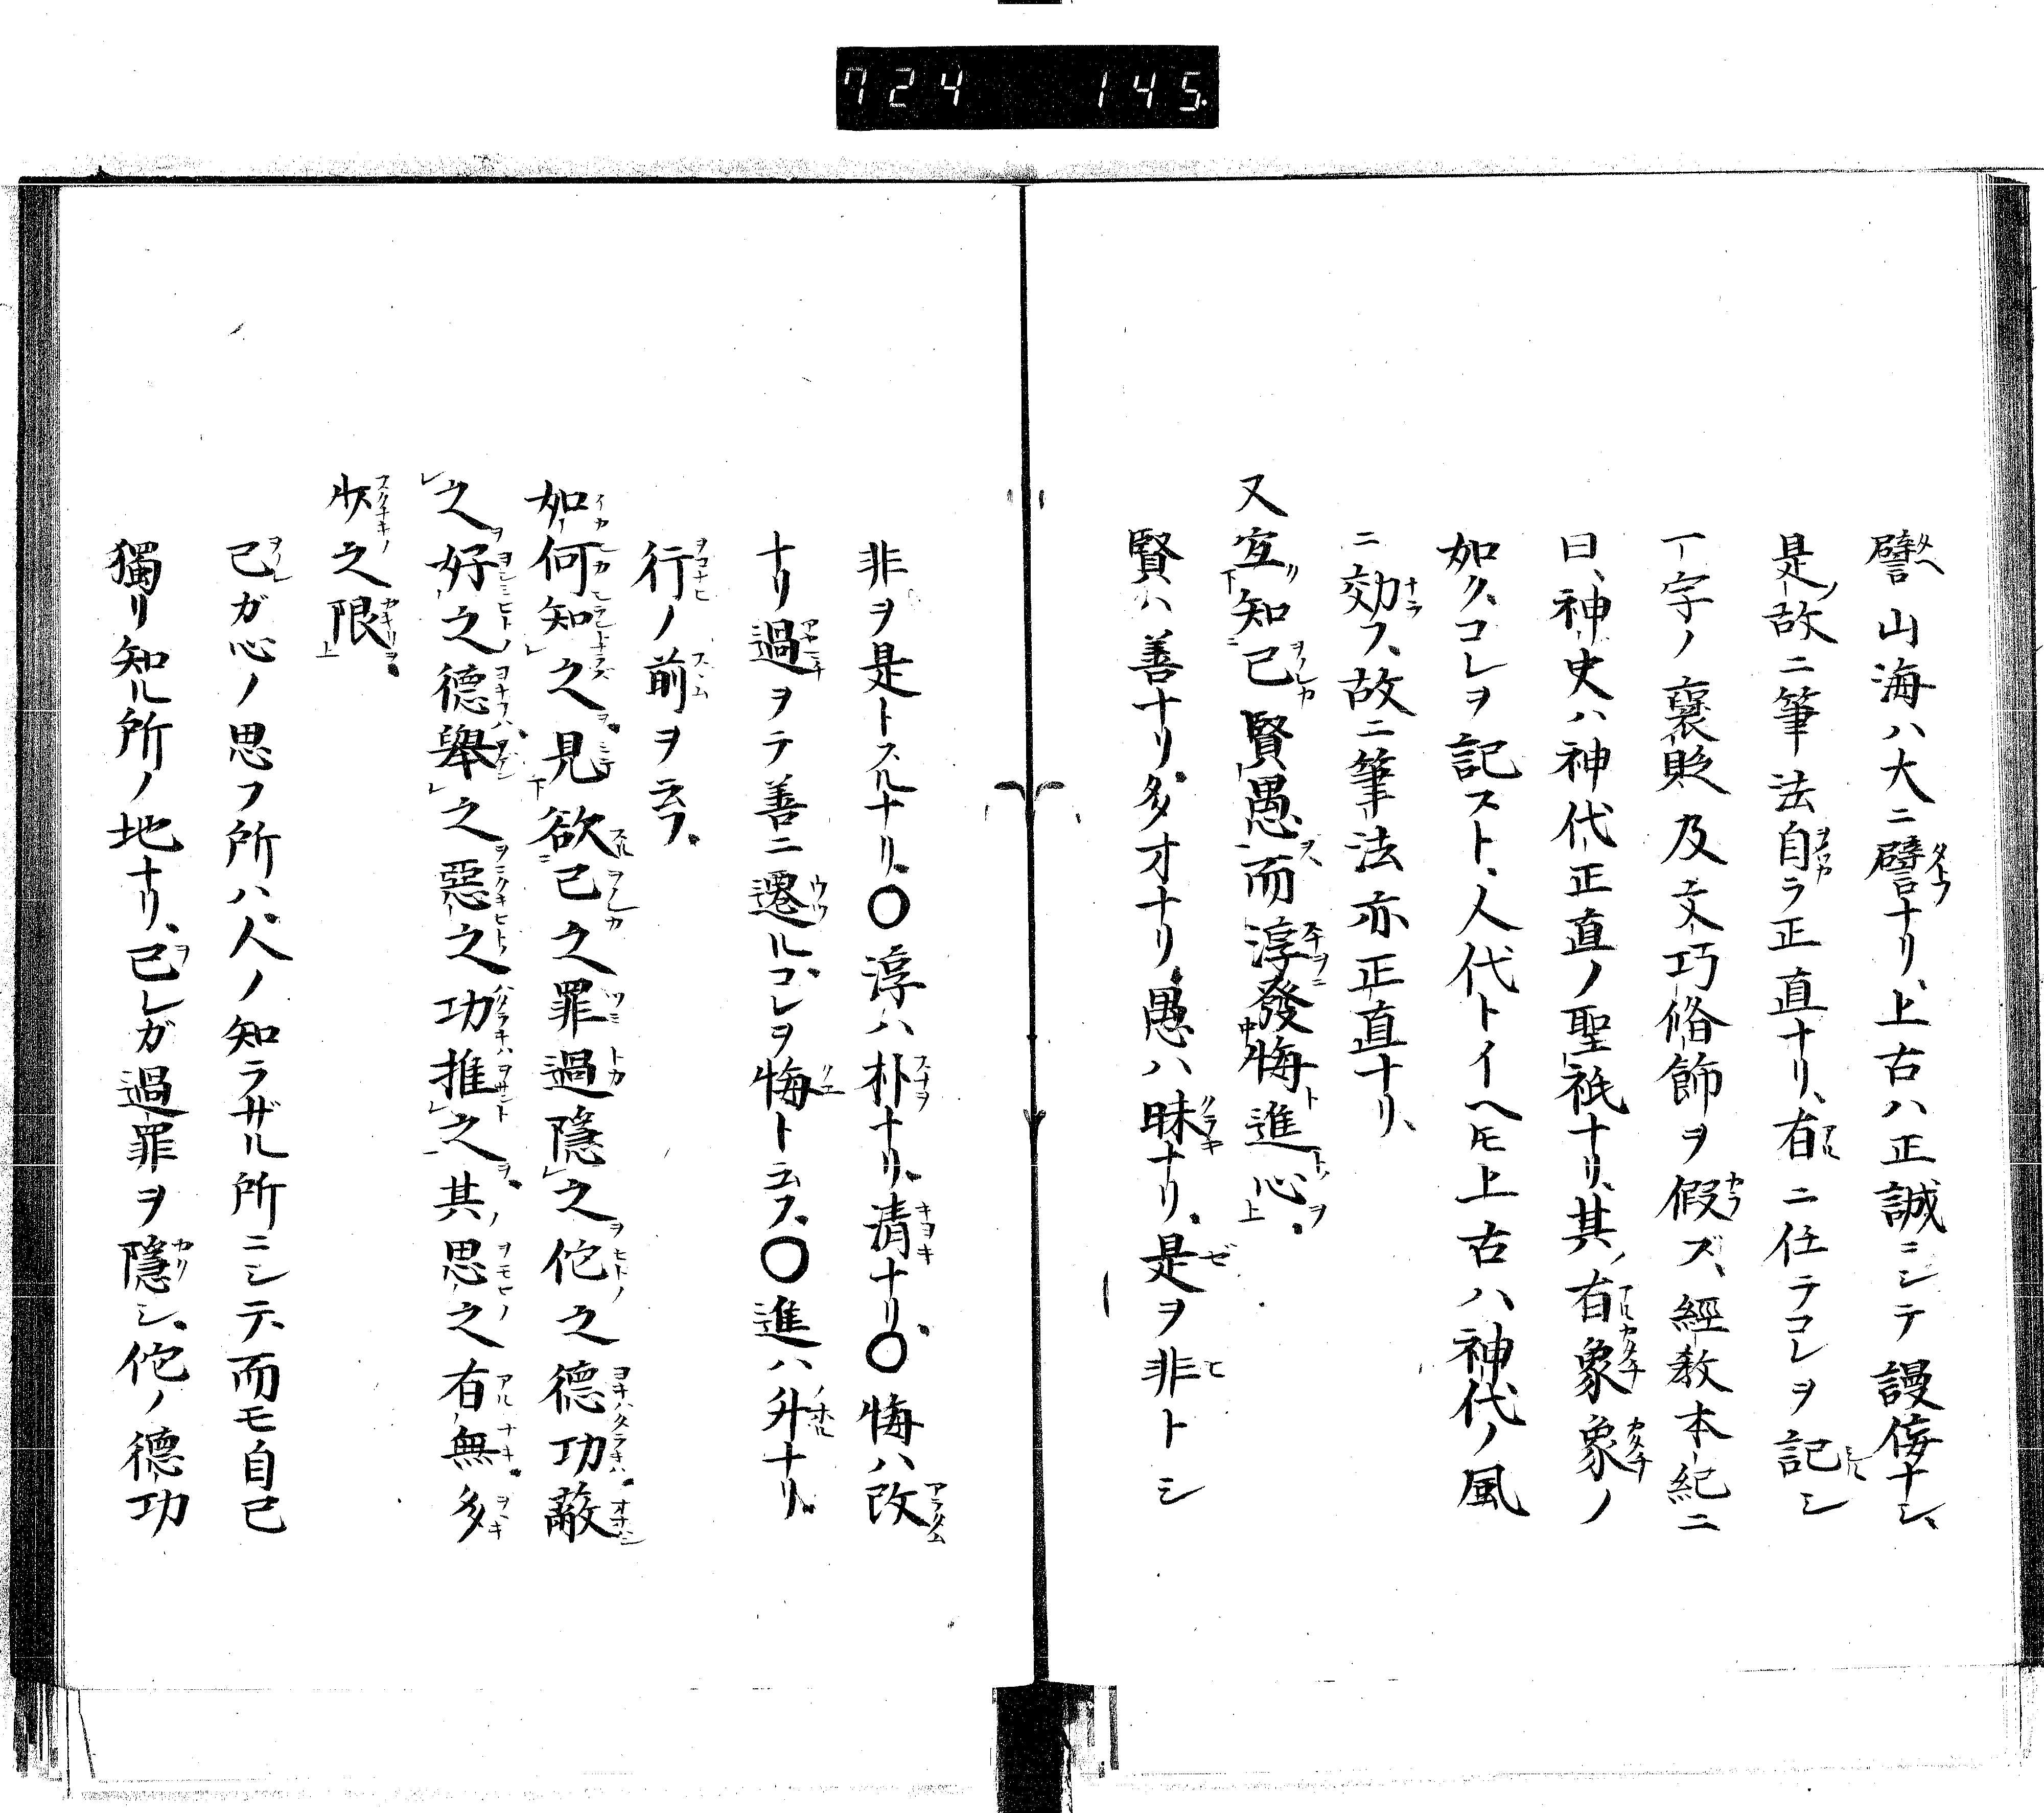 724 145.
譬山海ハ大ニ譬ナリ、上古ハ正誠ニシテ謾侮ナシ、
是故ニ筆法自ラ正直ナリ、有ニ任テコレヲ記シ
一字ノ襃貶及文巧脩飾ヲ假ズ、經教本紀ニ
曰、神史ハ神代正直ノ聖祇ナリ、其ノ有象象ノ
如ク、コレヲ記スト、人代トイヘ𪜈上古ハ神代ノ風
ニ効フ、故ニ筆法亦正直ナリ、
又宜知己賢愚而淳發悔進心。
賢ハ善ナリ、多才ナリ、愚ハ昧ナリ、是ヲ非トシ
非ヲ是トスルナリ、〇淳ハ朴ナリ、清ナリ、〇悔ハ改
ナリ過ヲテ善ニ遷ルコレヲ悔ト云フ、〇進ハ升ナリ、
行ノ前ヲ云フ、
如何知之見欲己之罪過隱之佗之德功蔽
之好之德舉之惡之功推之其思之有無多
少之限
己ガ心ノ思フ所ハ、人ノ知ラザル所ニシテ、而モ自己
獨リ知ル所ノ地ナリ、己レガ過罪ヲ隱シ、佗ノ德功